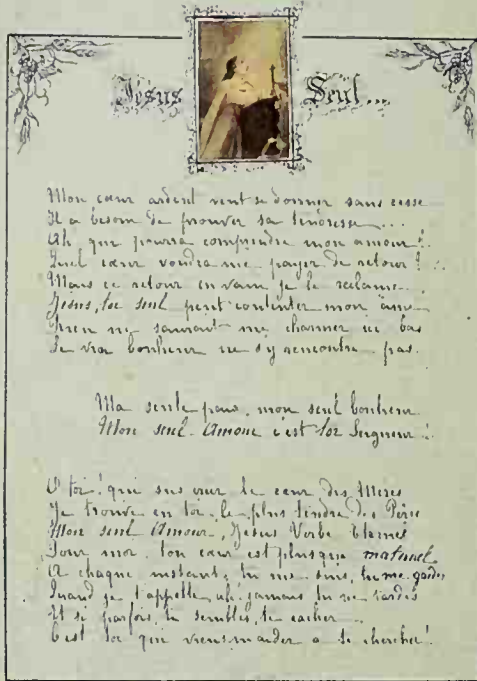 Jésus Seul...
Mon cœur ardent veut se donner sans cesse
Il a besoin de prouver sa tendresse...
Ah qui pourra comprendre mon amour!..
Quel cœur voudra me payer de retour?...
Mais ce retour en vain je le réclame...
Jésus, toi seul peut contenter mon âme
Rien ne saurait me charmer ici bas
Le vrai bonheur ne s'y rencontre pas.
Ma seule paix, mon seul bonheur
Mon seul Amour c'est toi Seigneur!..
O toi! qui sus créer le cœur des Mères
Je trouve en toi, le plus tendre des Pères
Mon seul Amour, Jésus Verbe Eternel
Pour moi, ton cœur est plus que maternel
A chaque instant, tu me suis, tu me gardes
Quand je t'appelle, ah jamais tu ne tardes
Et si parfois, tu sembles te cacher...
C'est toi qui viens m'aider a te chercher!